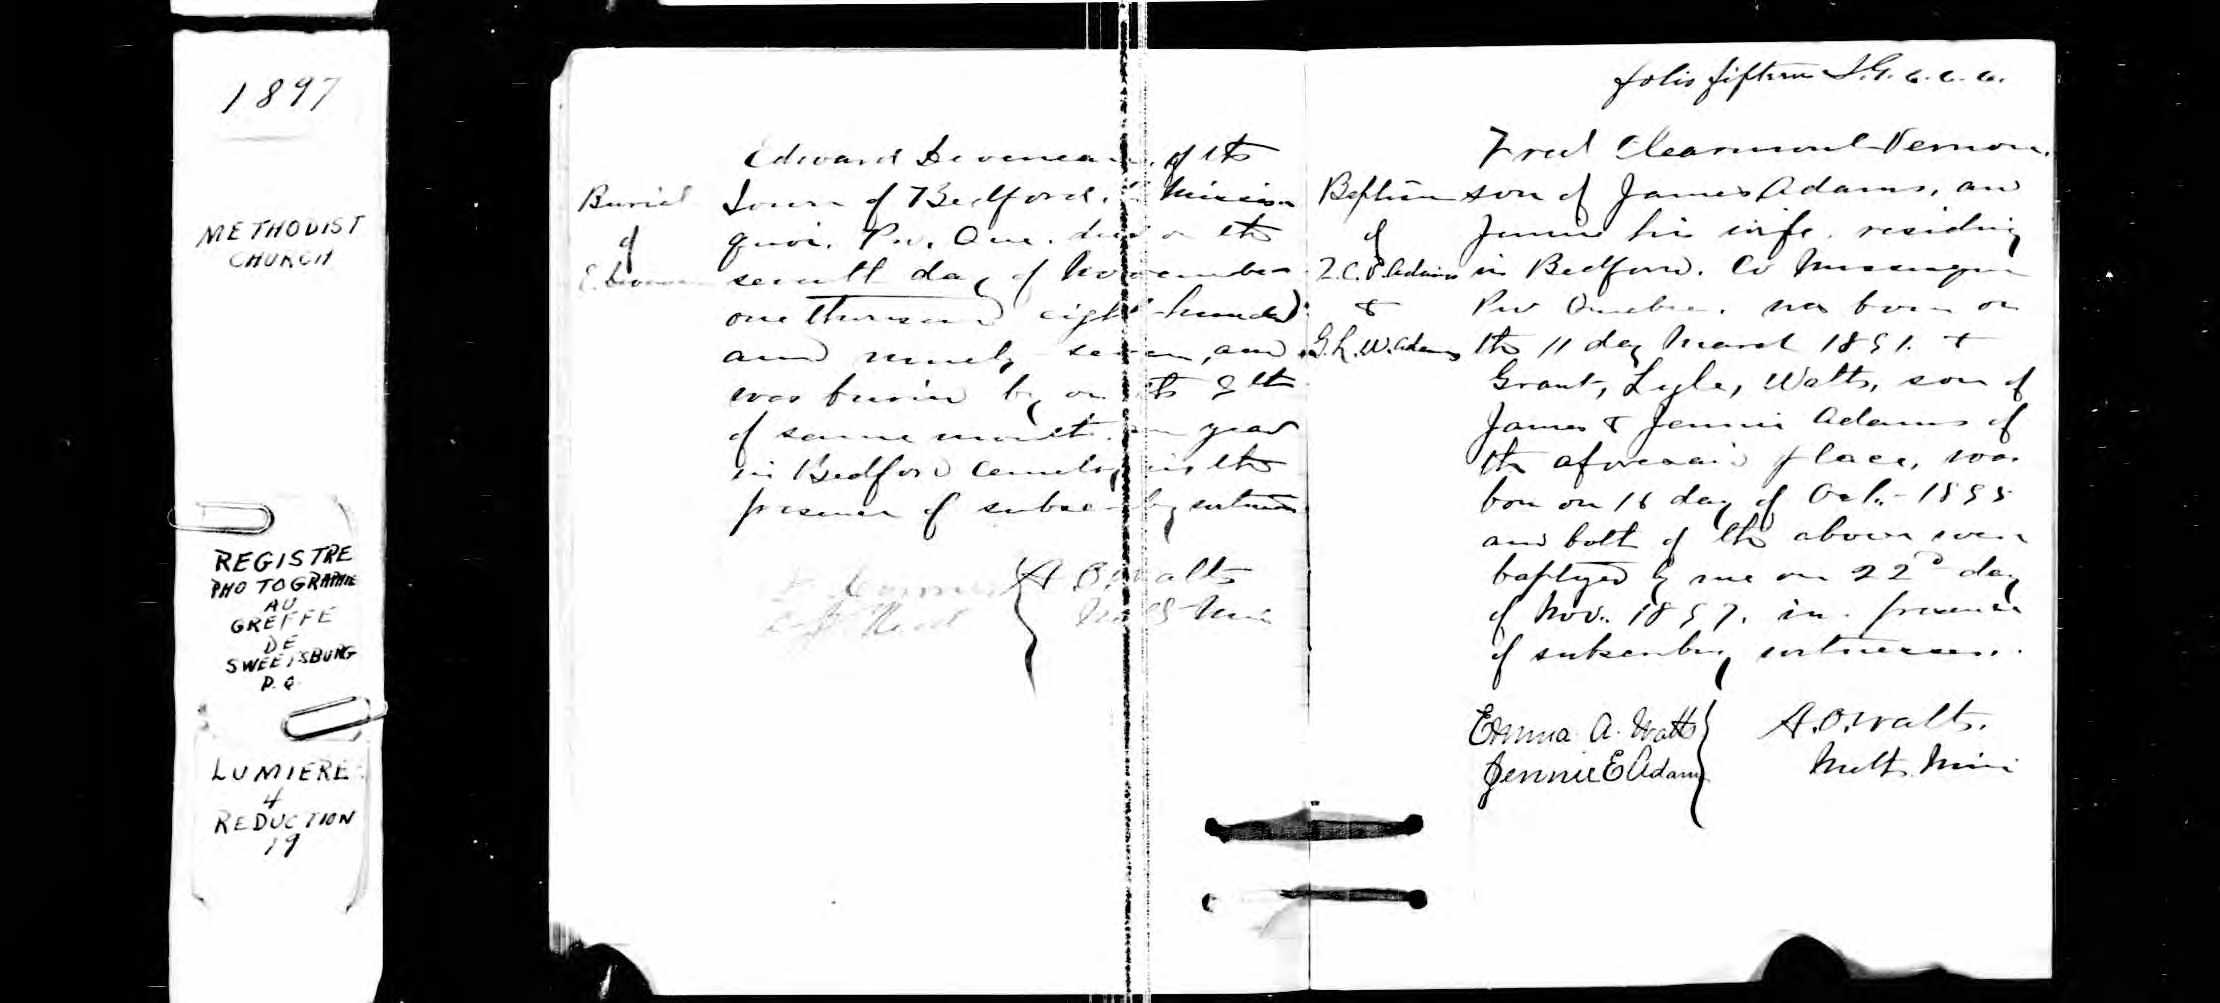 1897
METHODIST
CHURCH
REGISTRE
PHOTOGRAPHIE
AU
GREFFE
DE
SWEETSBURG
P.Q.
LUMIERE
4
REDUCTION
19
Burial
of
E.
Edward of the
Town of Bedford, Missis
quoi, Pro. Que. died on the
seventh day of November
one thousand eight hundred
and ninety seven, and
was buried by on the 9th
of same month year
in Bedford Cemetry in the
presence of subscribing witnesses
A. O. Watts
Meth Min
folio fifteen
Baptism
of
F.C.V. Adams
&
G.L.W. Adams
Fred Clearmont Vernon,
son of James Adams, and
Jennie his wife, residing
in Bedford, Co Missisquoi
Pro Quebec, was born on
the 11 day March 1891. +
Grant, Lyle, Watts, son of
James & Jennie Adams of
the aforesaid place, was
born on 16 day of Oct.
and both of the above were
baptyed by me on 22nd day
of Nov. 1897, in presence
of subscribing witnesses.
Emma A. Watts
Jennie E Adams
A. O. Watts.
Meth. Min